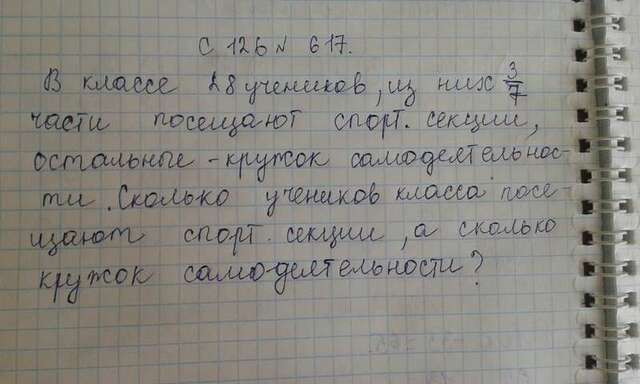 с 126 № 617.
В классе 28 учеников, из них 3/7
части посещают спорт. секции,
остальные - кружок самодеятельнос-
ти. Сколько учеников класса посе-
щают спорт. секции, а сколько
кружок самодеятельности?